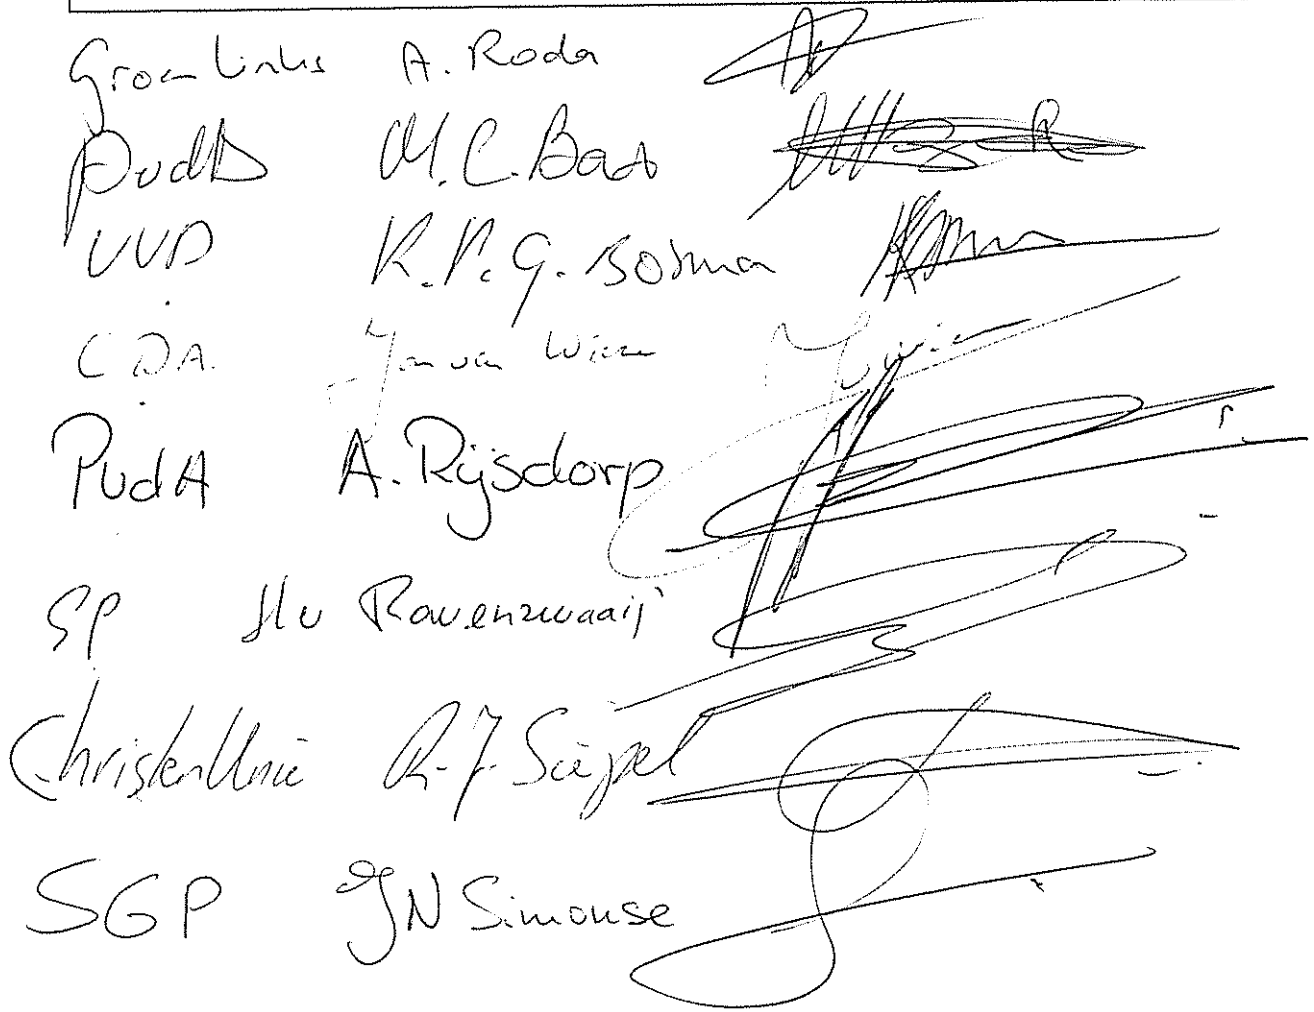 GroenLinks A. Roda
PvdD M.C. Baas
VVD K.P.G. Bosma
C.D.A. Jan van Wieren
PvdA A. Rijsdorp
SP H v Ravenzwaaij
ChristenUnie R.J. Seijpel
SGP JN Simonse